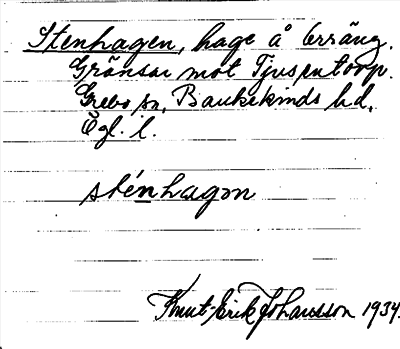 Stenhagen, hage å Erräng.
Gränsar mot Tjusentorp.
Grebo sn, Bankekinds hd,
Ögl. l.
sténhagən
Knut-Erik Johansson 1934.